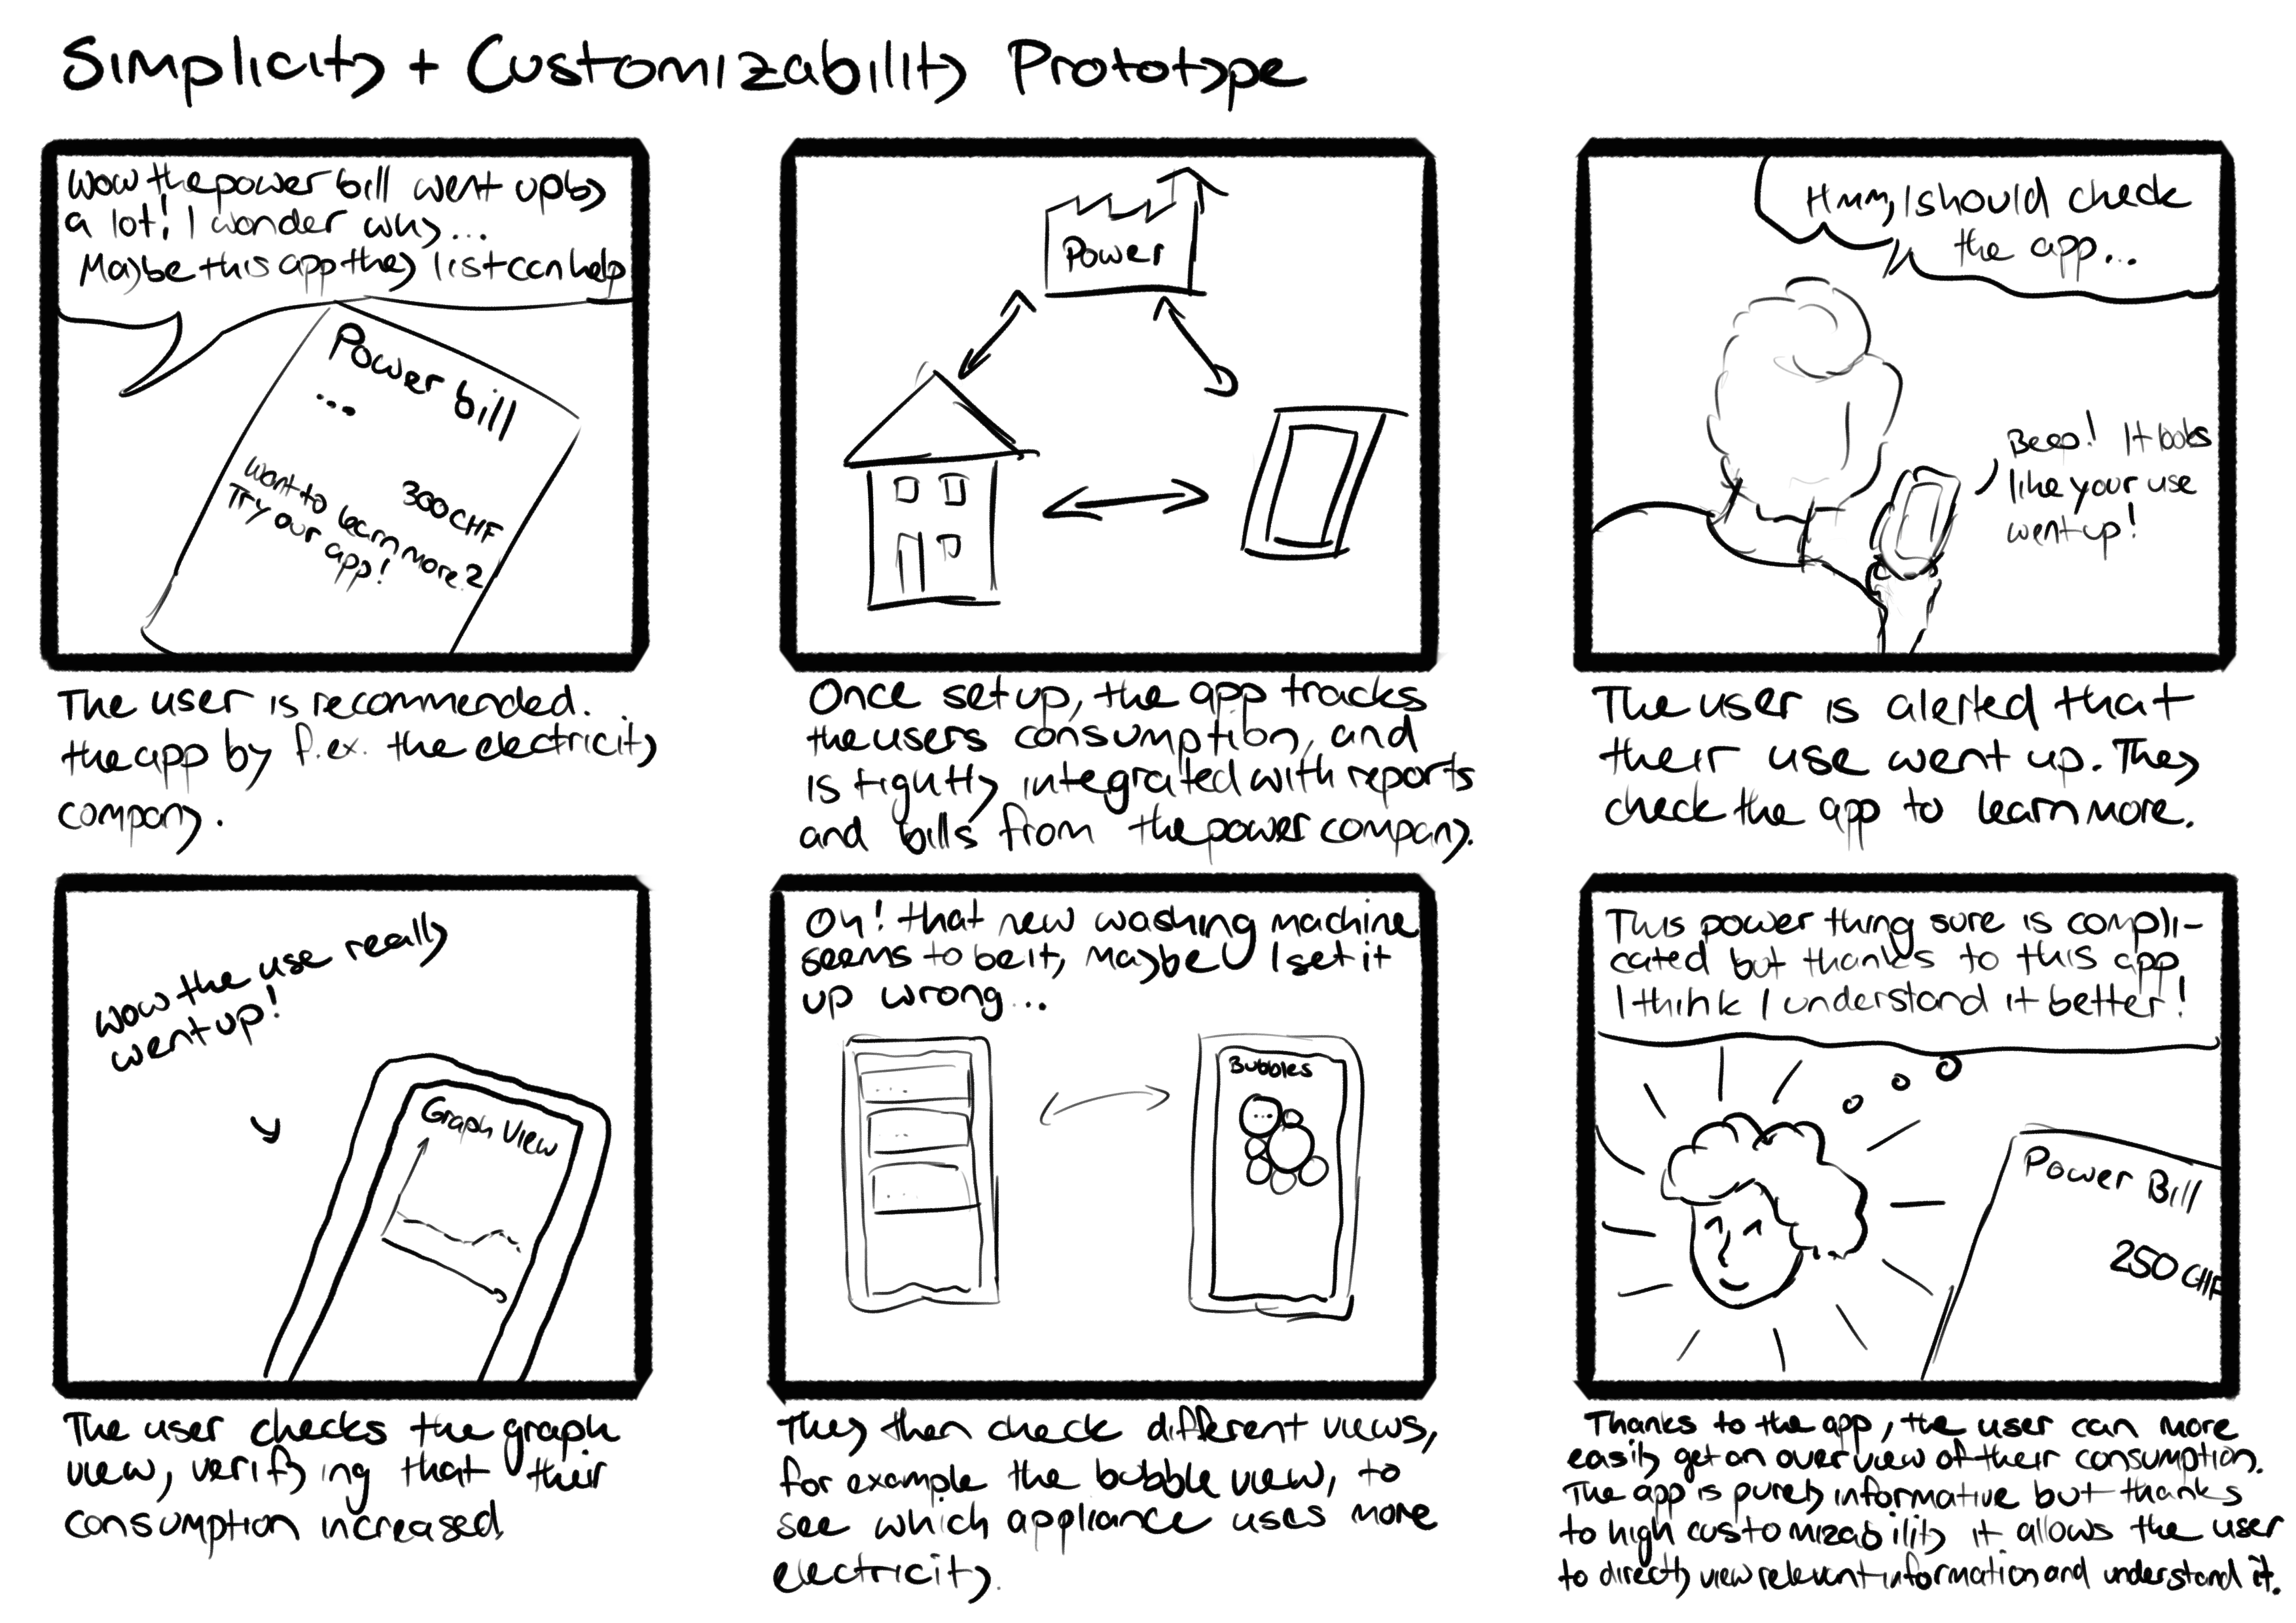 Simplicity + Customizability Prototype
Wow the power bill went up by
a lot! I wonder why...
Maybe this app they list can help
Power bill
...
300 CHF
Want to learn more?
Try our
app!
The user is recommended.
the app by f.ex. the electricity
company.
Power
Once set up, the app tracks
the users consumption, and
is tightly integrated with reports
and bills from the power company.
Hmm, I should check
the app...
Beep! It looks
like your use
went up!
The user is alerted that
their use went up. They
check the app to learn more.
Wow the use really
went up!
Graph View
The user checks the graph
view, verifying that their
consumption increased.
Oh! that new washing machine
seems to be it, Maybe I set it
up wrong...
...
..
...
Bubbles
...
They then check different views,
for example the bubble view, to
see which appliance uses more
electricity.
This power thing sure is compli-
cated but thanks to this app
I think I understand it better!
Power Bill
250 CHF
Thanks to the app, the user can more
easily get an overview of their consumption.
The app is purely informative but thanks
to high customizability it allows the user
to directly view relevant information and understand it.